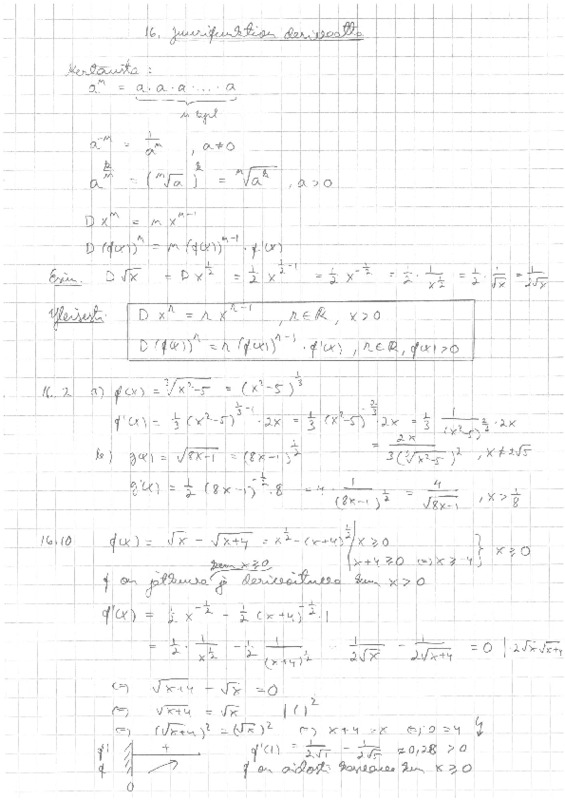 16. Juurifunktion derivaatta
Kertausta:
a^n = a·a·a·....·a
n kpl
a^-n = 1/a^n , a≠0
a^(k/n) = (ⁿ√a)^k = ⁿ√(a^k) , a>0
D x^n = n x^(n-1)
D (f(x))^n = n (f(x))^(n-1) · f'(x)
Esim. D √x = D x^(1/2) = 1/2 x^(1/2-1) = 1/2 x^(-1/2) = 1/2 · 1/x^(1/2) = 1/2 · 1/√x = 1/(2√x)
Yleisesti: D x^r = r x^(r-1) , r∈ℝ , x>0
D (f(x))^r = r (f(x))^(r-1) · f'(x) , r∈ℝ, f(x)>0
16.2 a) f(x) = ³√(x²-5) = (x²-5)^(1/3)
f'(x) = 1/3 (x²-5)^(1/3-1) · 2x = 1/3 (x²-5)^(-2/3) · 2x = 1/3 · 1/(x²-5)^(2/3) · 2x
= 2x/(3(³√(x²-5))²) , x≠±√5
b) g(x) = √(8x-1) = (8x-1)^(1/2)
g'(x) = 1/2 (8x-1)^(-1/2) · 8 = 4 · 1/(8x-1)^(1/2) = 4/√(8x-1) , x>1/8
16.10 f(x) = √x - √(x+4) = x^(1/2) - (x+4)^(1/2) | x≥0
x+4≥0 ⇔ x≥-4 } x≥0
kun x≥0
f on jatkuva ja derivoituva kun x>0
f'(x) = 1/2 x^(-1/2) - 1/2 (x+4)^(-1/2) · 1
= 1/2 · 1/x^(1/2) - 1/2 · 1/(x+4)^(1/2) = 1/(2√x) - 1/(2√(x+4)) = 0 | · 2√x√(x+4)
⇔ √(x+4) - √x = 0
⇔ √(x+4) = √x | ( )²
⇔ (√(x+4))² = (√x)² ⇔ x+4 = x ⇔ 0 = 4 ↯
f' + f'(1) = 1/(2√1) - 1/(2√5) ≈ 0,28 > 0
f f on aidosti kasvava kun x≥0
0